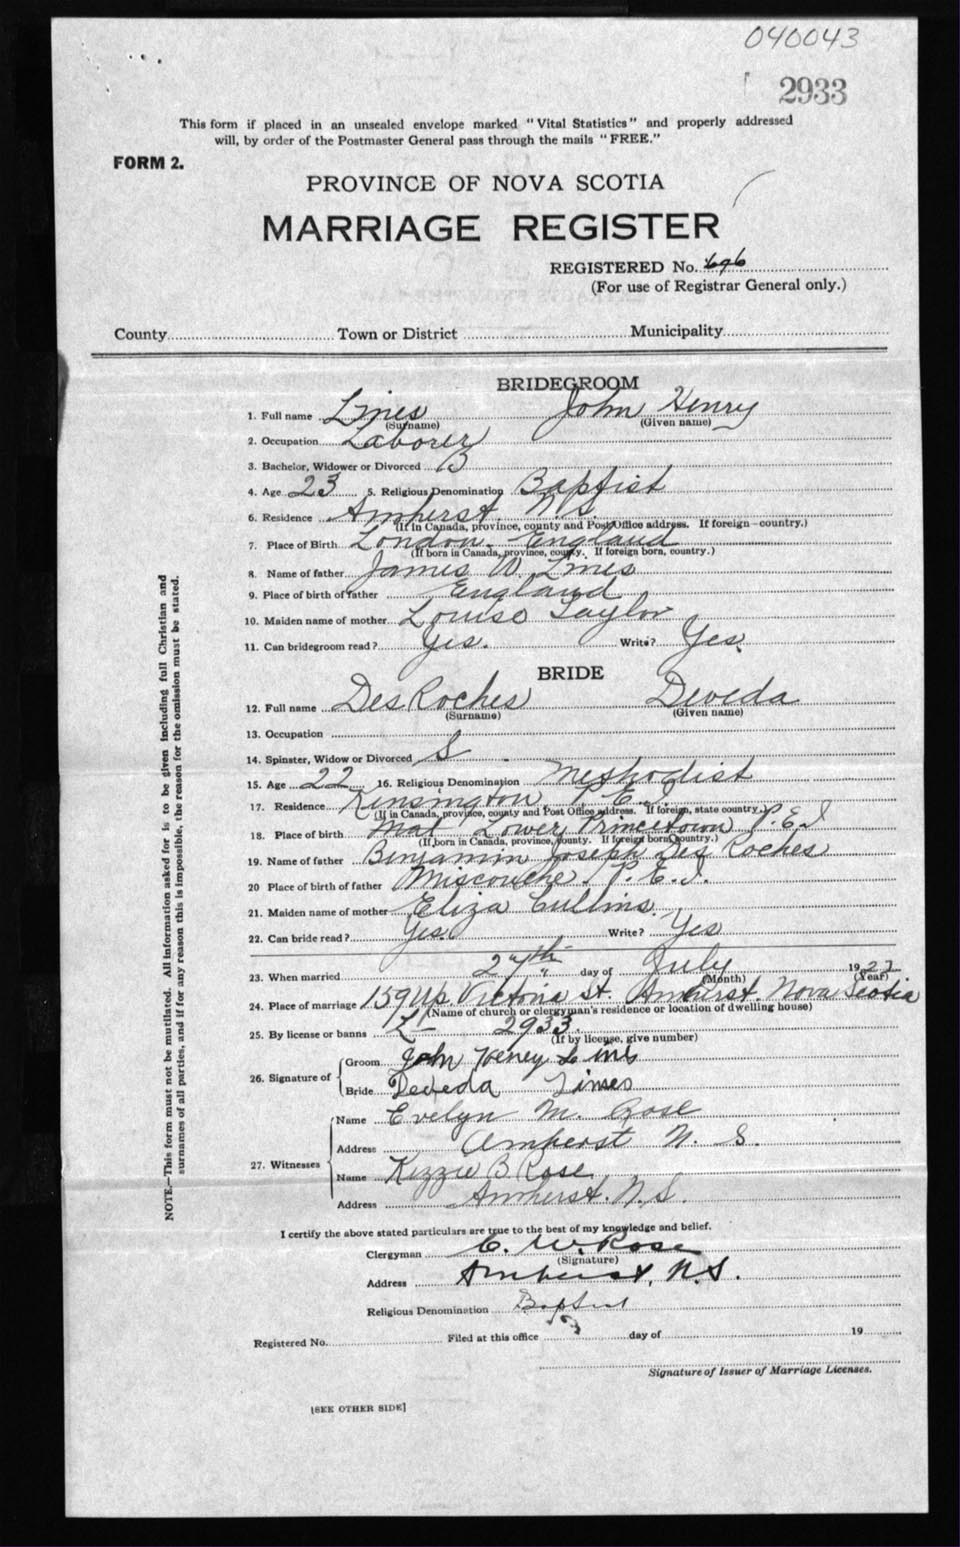 040043
2933
This form if placed in an unsealed envelope marked "Vital Statistics" and properly addressed
will, by order of the Postmaster General pass through the mails "FREE."
FORM 2.
PROVINCE OF NOVA SCOTIA
MARRIAGE REGISTER
REGISTERED No. 696
(For use of Registrar General only.)
County Town or District Municipality
BRIDEGROOM
1. Full name Lines John Henry
(Surname) (Given name)
2. Occupation Laborer
3. Bachelor, Widower or Divorced B
4. Age 23 5. Religious Denomination Baptist
6. Residence Amherst. N.S.
(If in Canada, province, county and Post Office address. If foreign—country.)
7. Place of Birth London. England
(If born in Canada, province, county. If foreign born, country.)
8. Name of father James W. Lines
9. Place of birth of father England
10. Maiden name of mother Louise Taylor
11. Can bridegroom read? Yes. Write? Yes.
BRIDE
12. Full name DesRoches Deveda
(Surname) (Given name)
13. Occupation
14. Spinster, Widow or Divorced S
15. Age 22 16. Religious Denomination Methodist
17. Residence Kensington P.E.I.
(If in Canada, province, county and Post Office address. If foreign, state country.)
18. Place of birth Lower Princetown P.E.I
(If born in Canada, province, county. If foreign born country.)
19. Name of father Benjamin Joseph Des Roches
20 Place of birth of father Miscouche. P.E.I.
21. Maiden name of mother Eliza Cullins.
22. Can bride read? Yes. Write? Yes
23. When married 27th day of July 1922
(Month) (Year)
24. Place of marriage 159 Up Victoria St. Amherst. Nova Scotia
(Name of church or clergyman's residence or location of dwelling house)
25. By license or banns L— 2933.
(If by license, give number)
26. Signature of Groom John Henry Lines
Bride Deveda Lines
27. Witnesses Name Evelyn M. Rose
Address Amherst N. S.
Name Kizzie B Rose
Address Amherst. N.S.
I certify the above stated particulars are true to the best of my knowledge and belief.
Clergyman C. W. Rose
(Signature)
Address Amherst, N.S.
Religious Denomination Baptist
Registered No. Filed at this office day of 19
Signature of Issuer of Marriage Licenses.
[SEE OTHER SIDE]
NOTE.—This form must not be mutilated. All information asked for is to be given including full Christian and
surnames of all parties, and if for any reason this is impossible, the reason for the omission must be stated.